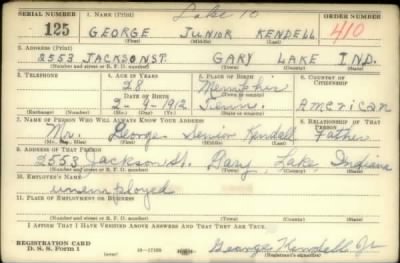 SERIAL NUMBER 1. NAME (Print) Lake 10 ORDER NUMBER
125 GEORGE JUNIOR KENDELL 410
(First) (Middle) (Last)
2. ADDRESS (Print)
2553 JACKSON ST. GARY LAKE IND.
(Number and street or R. F. D. number) (Town) (County) (State)
3. TELEPHONE 4. AGE IN YEARS 5. PLACE OF BIRTH 6. COUNTRY OF CITIZENSHIP
28 Memphis
DATE OF BIRTH (Town or county)
2-9-1912 Tenn. American
(Exchange) (Number) (Mo.) (Day) (Yr.) (State or country)
7. NAME OF PERSON WHO WILL ALWAYS KNOW YOUR ADDRESS 8. RELATIONSHIP OF THAT PERSON
Mr. George Senior Kendell Father
(Mr., Mrs., Miss) (First) (Middle) (Last)
9. ADDRESS OF THAT PERSON
2553 Jackson St. Gary, Lake, Indiana
(Number and street or R. F. D. number) (Town) (County) (State)
10. EMPLOYER'S NAME
unemployed
11. PLACE OF EMPLOYMENT OR BUSINESS
(Number and street or R. F. D. number) (Town) (County) (State)
I AFFIRM THAT I HAVE VERIFIED ABOVE ANSWERS AND THAT THEY ARE TRUE.
REGISTRATION CARD
D. S. S. Form 1 George Kendell Jr
(Registrant's signature)